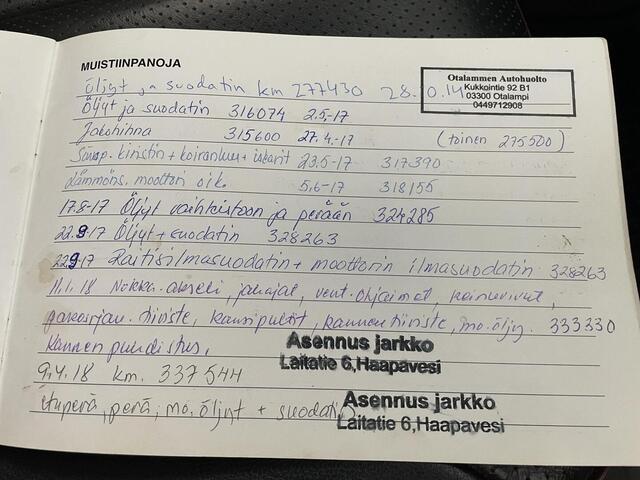 MUISTIINPANOJA
Öljyt ja suodatin km 277430 28.0.14
Otalammen Autohuolto
Kukkointie 92 B1
03300 Otalampi
0449712908
Öljyt ja suodatin 316074 2.5.-17
Jakohihna 315600 27.4.-17 (toinen 275500)
kiristin + koiranluu + iskarit 23.5-17 317390
Lämmöns. moottori oik. 5.6-17 318155
17.8-17 Öljyt vaihteistoon ja perään 324285
22.9.17 Öljyt + suodatin 328263
22.9.17 Raitisilmasuodatin + moottorin ilmasuodatin 328263
11.1.18 Nokka-akseli, vent.ohjaimet, keinuvivut,
tiiviste, kansipultit, kannentiiviste, mo.öljy. 333330
Kannen puhdistus,
Asennus jarkko
Laitatie 6,Haapavesi
9.4.18 km. 337544
etuperä, perä, mo.öljyt + suodatin
Asennus jarkko
Laitatie 6,Haapavesi